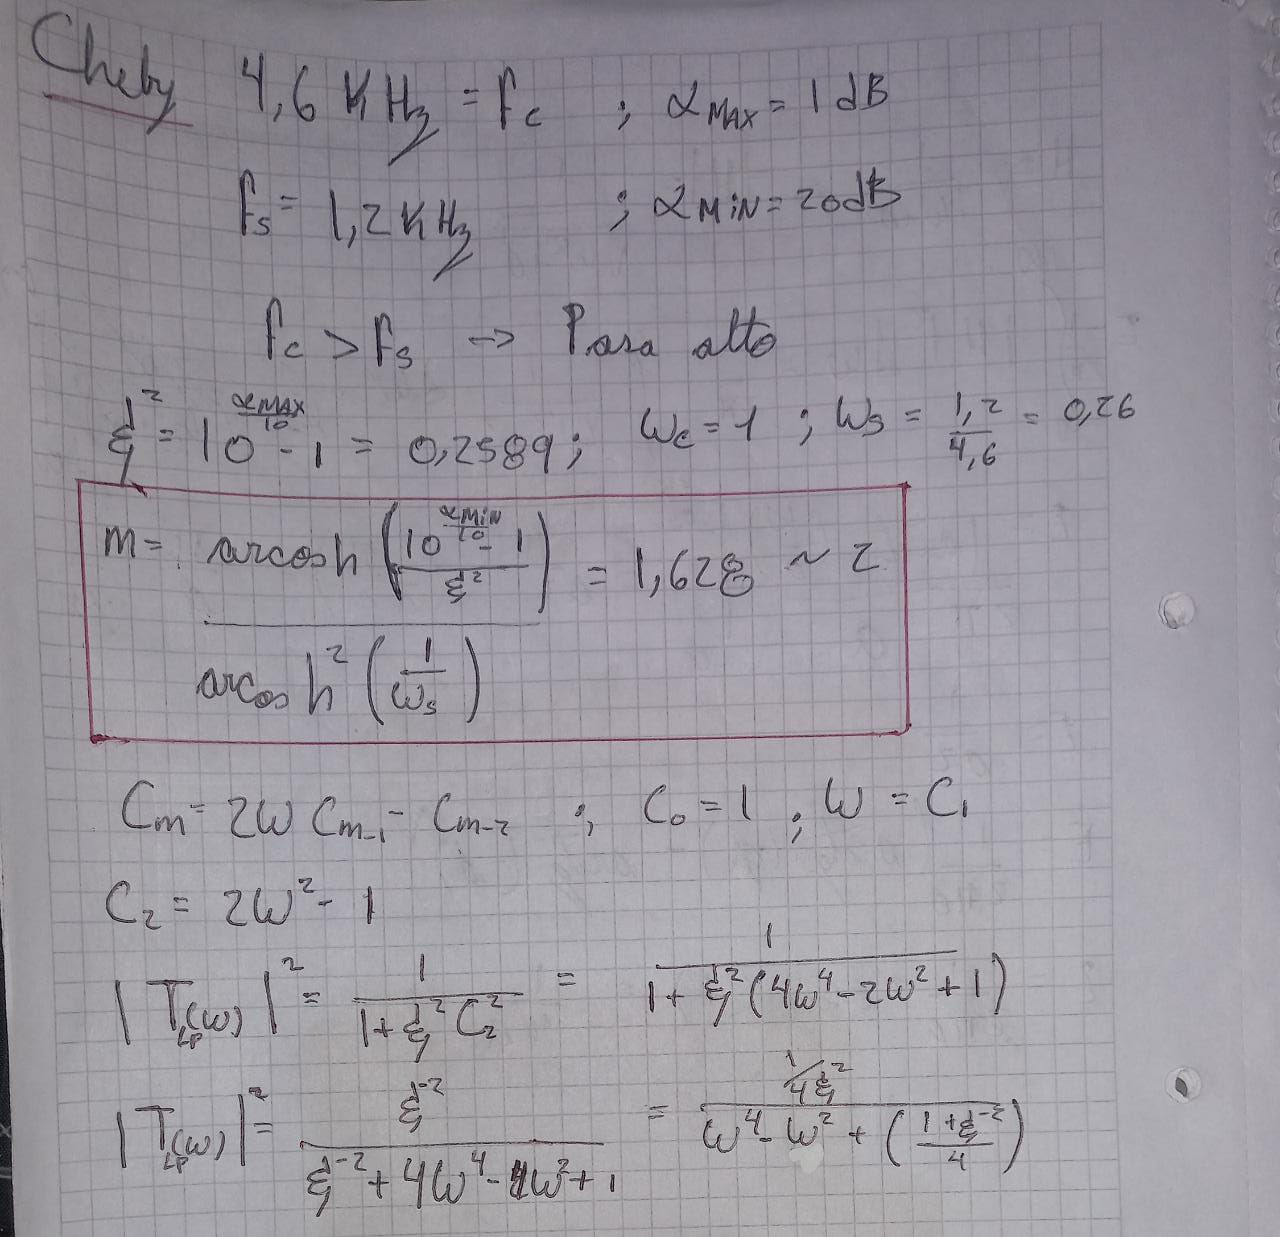 Cheby 4,6 KHz = fc ; αMAX = 1 dB
fs = 1,2 KHz ; αMiN = 20dB
fc > fs → Pasa alto
ξ² = 10^(αMAX/10) - 1 = 0,2589 ; ωc = 1 ; ωs = 1,2/4,6 = 0,26
m = arcosh(√((10^(αMiN/10) - 1)/ξ²)) / arcosh²(1/ωs) = 1,628 ~ 2
Cm = 2ω Cm-1 - Cm-2 ; C0 = 1 ; ω = C1
C2 = 2ω² - 1
|T(ω)LP|² = 1/(1 + ξ² C2²) = 1/(1 + ξ²(4ω⁴ - 2ω² + 1))
|T(ω)LP|² = ξ⁻²/(ξ⁻² + 4ω⁴ - 4ω² + 1) = (1/4ξ²)/(ω⁴ - ω² + ((1 + ξ⁻²)/4))